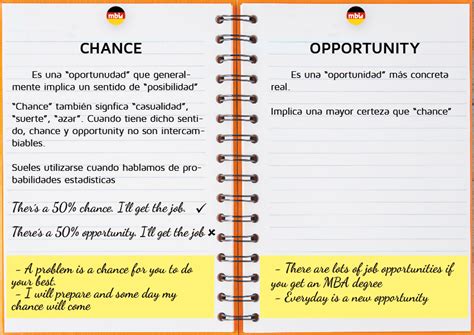 mbW
CHANCE
Es una "oportunudad" que general-
mente implica un sentido de "posibilidad"
"Chance" también signfica "casualidad",
"suerte", "azar". Cuando tiene dicho senti-
do, chance y opportunity no son intercam-
biables.
Sueles utilizarse cuando hablamos de pro-
babilidades estadisticas
Ther's a 50% chance. I'll get the job. ✓
There's a 50% opportunity. I'll get the job. ✖
- A problem is a chance for you to do
your best.
- I will prepare and some day my
chance will come
mbW
OPPORTUNITY
Es una "oportunidad" más concreta
real.
Implica una mayor certeza que "chance"
- There are lots of job opportunities if
you get an MBA degree
- Everyday is a new opportunity